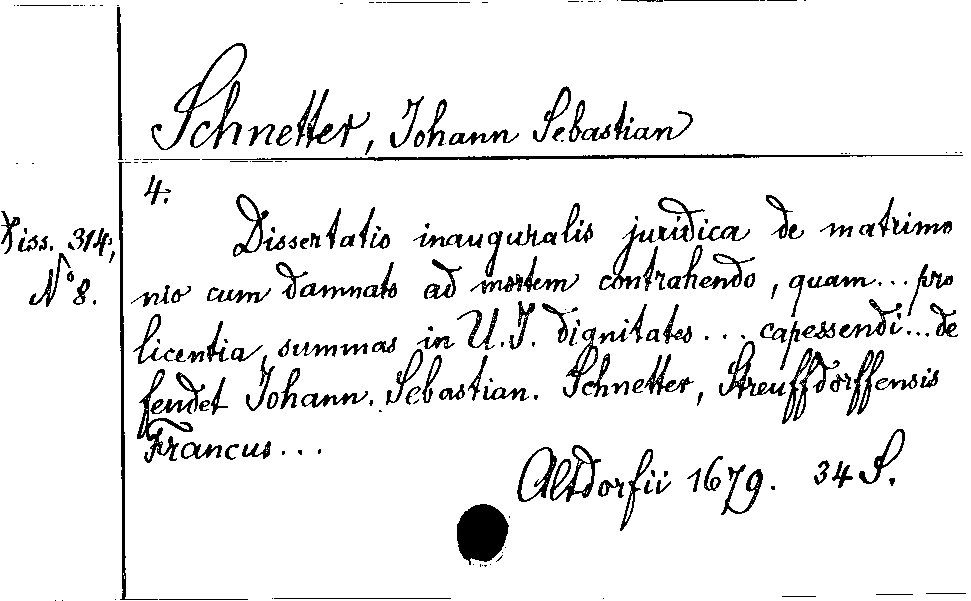 Schnetter, Johann Sebastian
4.
Diss. 314,
No 8.
Dissertatio inauguralis juridica de matrimo
nio cum damnato ad mortem contrahendo, quam... pro
licentia, summas in U. J. dignitates... capessendi... de
fendet Johann. Sebastian. Schnetter, Streuffdorffensis
Francus...
Altdorfii 1679. 34 S.